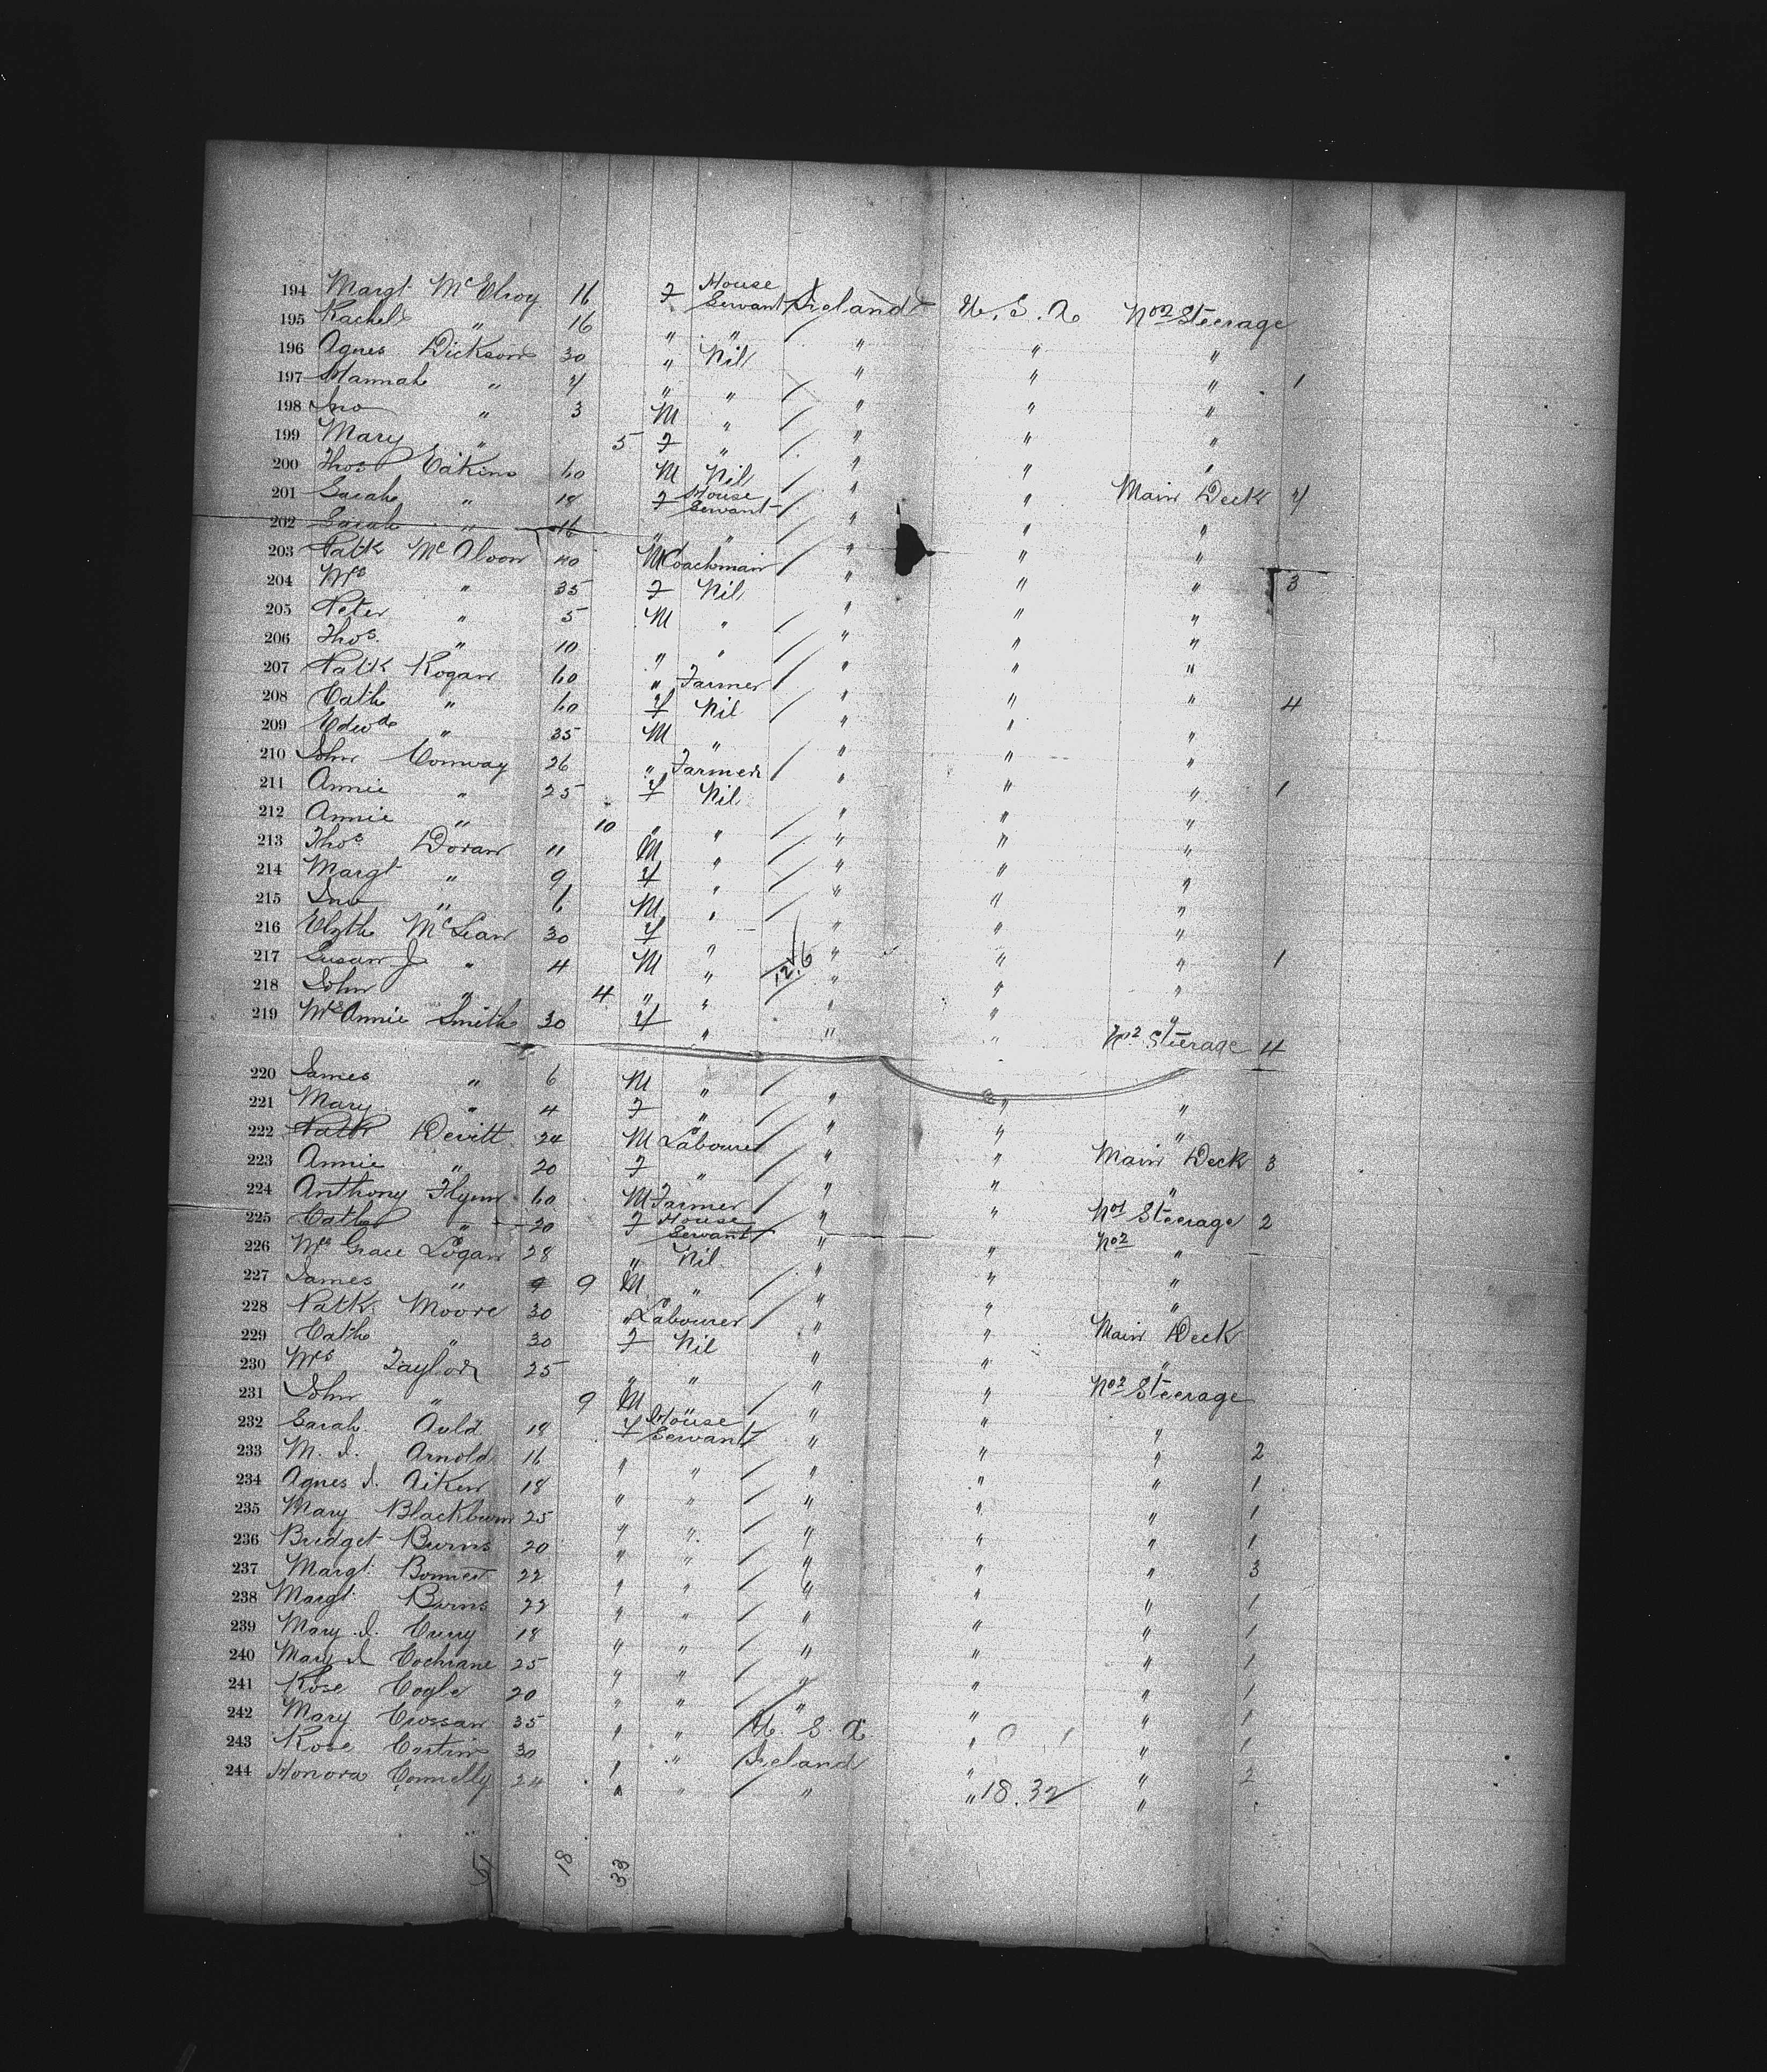 194 Margt McElroy 16 F House Servant Ireland U.S.A No2 Steerage
195 Rachel " 16 " " " " "
196 Agnes Dickson 30 " Nil " " " 1
197 Hannah " 4 " " " " "
198 Jno " 3 M " " " "
199 Mary " 5 F " " " "
200 Thos Eakins 60 M Nil " " Main Deck 4
201 Sarah " 18 F House Servant " " "
202 Sarah " 16 " " " " "
203 Patk 40 M Coachman " " " 3
204 Mrs " 35 F Nil " " "
205 Peter " 5 M " " " "
206 Thos. " 10 " " " " "
207 Patk Rogan 60 " Farmer " " " 4
208 Cath " 60 F Nil " " "
209 Edwd " 35 M " " " "
210 John Conway 26 " Farmer " " " 1
211 Annie " 25 F Nil " " "
212 Annie " 10 " " " " "
213 Thos Doran 11 M " " " "
214 Margt " 9 F " " " "
215 Jno " 6 M " " " "
216 Elzth McLean 30 F " " " " 1
217 Susan J " 4 M " 12/6 " " "
218 John " 4 " " " " "
219 Mrs Annie Smith 30 F " " " No2 Steerage 4
220 James " 6 M " " " "
221 Mary " 4 F " " " "
222 Patk Devitt 24 M Labourer " " Main Deck 3
223 Annie " 20 F " " " "
224 Anthony Flynn 60 M Farmer " " No1 Steerage 2
225 Cath " 20 F House Servant " " No2 "
226 Mrs Grace Logan 28 " Nil " " "
227 James " 9 M " " " "
228 Patk Moore 30 " Labourer " " Main Deck
229 Cath " 30 F Nil " " "
230 Mrs Taylor 25 " " " " No2 Steerage
231 John " 9 M " " " "
232 Sarah Auld 18 F House Servant " " " 2
233 M. J. Arnold 16 " " " " " 1
234 Agnes J. Aiken 18 " " " " " 1
235 Mary Blackburn 25 " " " " " 1
236 Bridget Burns 20 " " " " " 3
237 Margt. Bonner 22 " " " " " 1
238 Margt. Burns 22 " " " " " 1
239 Mary J. Curry 18 " " " " " 1
240 Mary J Cochrane 25 " " " " " 1
241 Rose Cogle 20 " " " " " 1
242 Mary Crossan 35 " " U.S.A " " 1
243 Rose 30 " " Ireland " " 2
244 Honora Connelly 24 " " " " 18.32 "
51 18 33